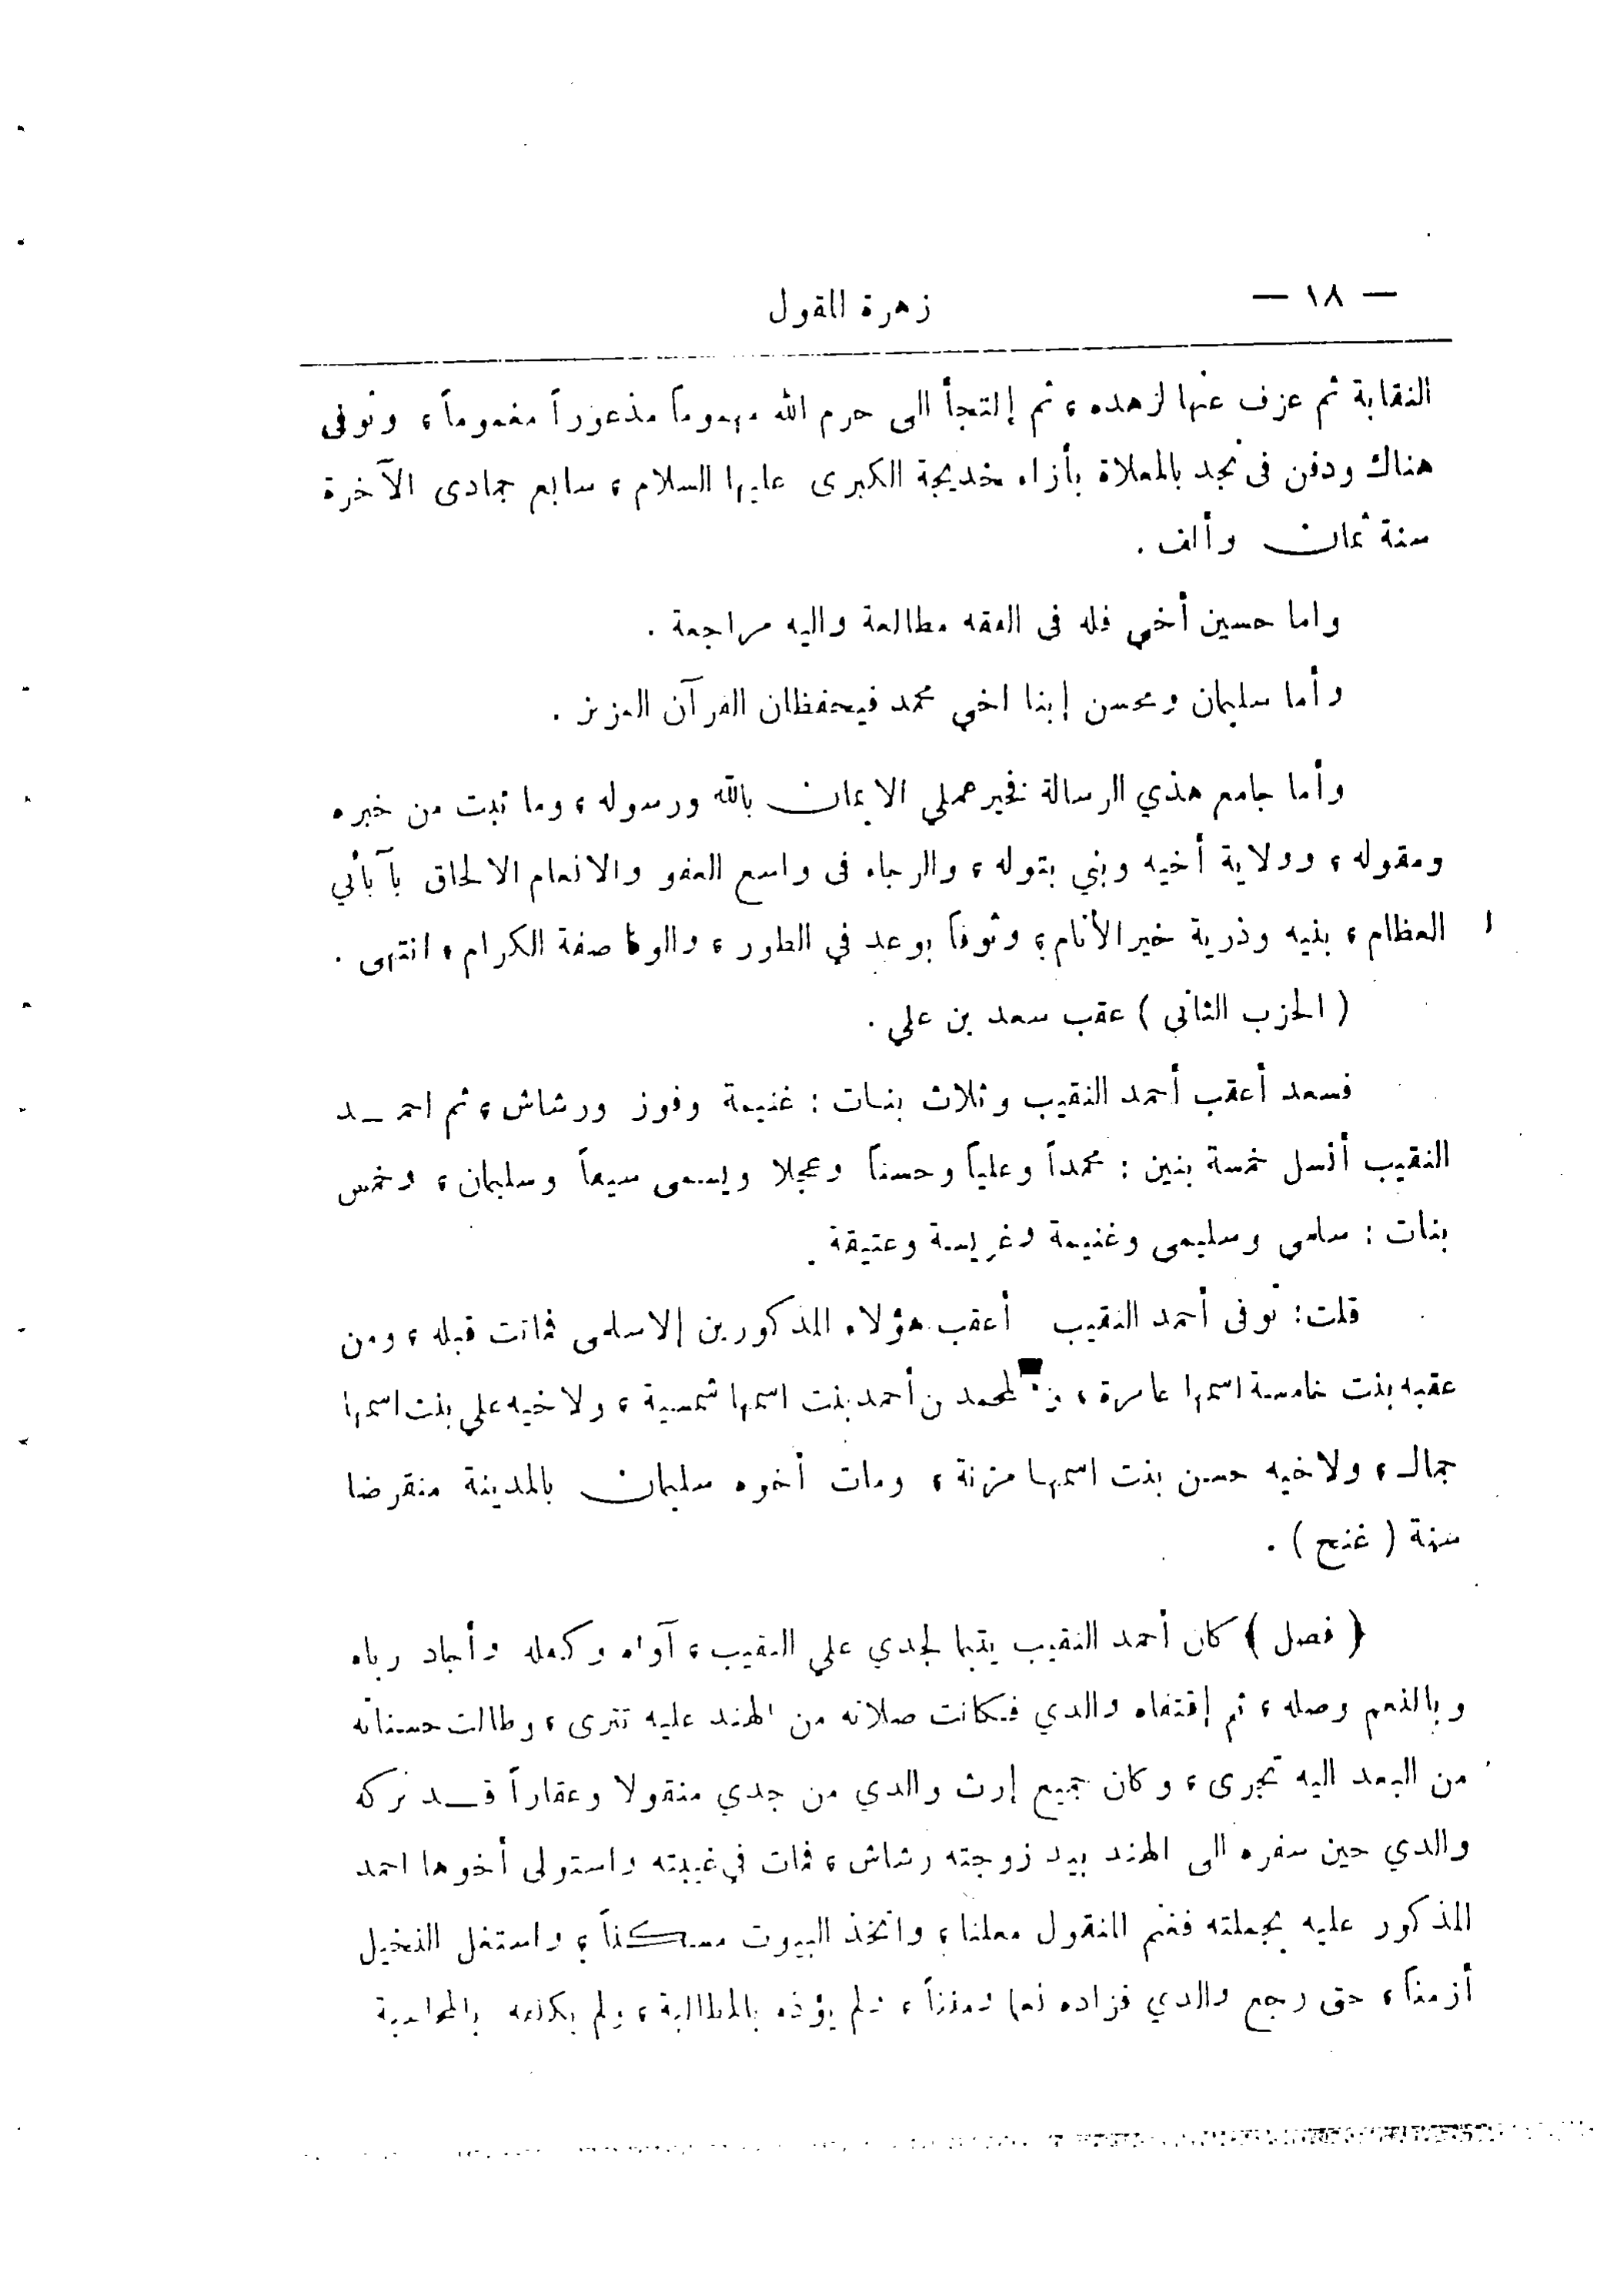 — ١٨ — زهرة المقول
النقابة ثم عزف عنها لزهده ، ثم إلتجأ الى حرم الله مهموماً مذعوراً مغموماً ، وتوفى
هناك ودفن فى نجد بالمعلاة بأزاء خديجة الكبرى عليها السلام ، سابع جمادى الآخرة
سنة ثمان وألف .
واما حسين أخي فله فى الفقه مطالعة واليه مراجعة .
وأما سليمان ومحسن إبنا اخي محمد فيحفظان القرآن العزيز .
وأما جامع هذي الرسالة فخير عملي الايمان بالله ورسوله ، وما ثبت من خبره
ومقوله ، وولاية أخيه وبني بتوله ، والرجاء فى واسع العفو والانعام الالحاق بآبأئي
العظام ، بنيه وذرية خير الأنام ، وثوقاً بوعد في الطور ، والوفا صفة الكرام ، انتهى .
( الحزب الثاني ) عقب سعد بن علي .
فسعد أعقب أحمد النقيب وثلاث بنات : غنيمة وفوز ورشاش ، ثم احمد
النقيب أنسل خمسة بنين : محمداً وعلياً وحسناً وعجلا ويسمى سيعاً وسليمان ، وخمس
بنات : سلمى وسليمى وغنيمة وغريسة وعتيقة .
قلت : توفى أحمد النقيب أعقب هؤلاء المذكورين إلا سلمى فماتت قبله ، ومن
عقبه بنت خامسة اسمها عامرة ، لمحمد بن أحمد بنت اسمها شمسية ، ولاخيه علي بنت اسمها
جمال ، ولاخيه حسن بنت اسمها مزنة ، ومات أخوه سليمان بالمدينة منقرضا
سنة ( غنح ) .
( فصل ) كان أحمد النقيب يتيما لجدي علي النقيب ، آواه وكفله وأجاد رباه
وبالنعم وصله ، ثم إقتفاه والدي فكانت صلاته من الهند عليه تترى ، وطالت حسناته
من البعد اليه تجرى ، وكان جميع إرث والدي من جدي منقولا وعقاراً قد تركه
والدي حين سفره الى الهند بيد زوجته رشاش ، فمات في غيبته واستولى أخوها احمد
المذكور عليه بجملته فغنم المنقول معلنا ، واتخذ البيوت مسكناً ، واستغل النخيل
أزمناً ، حتى رجع والدي فزاده نعما ومنناً ، فلم يؤذه بالمطالبة ، ولم يكلفه بالمحاسبة